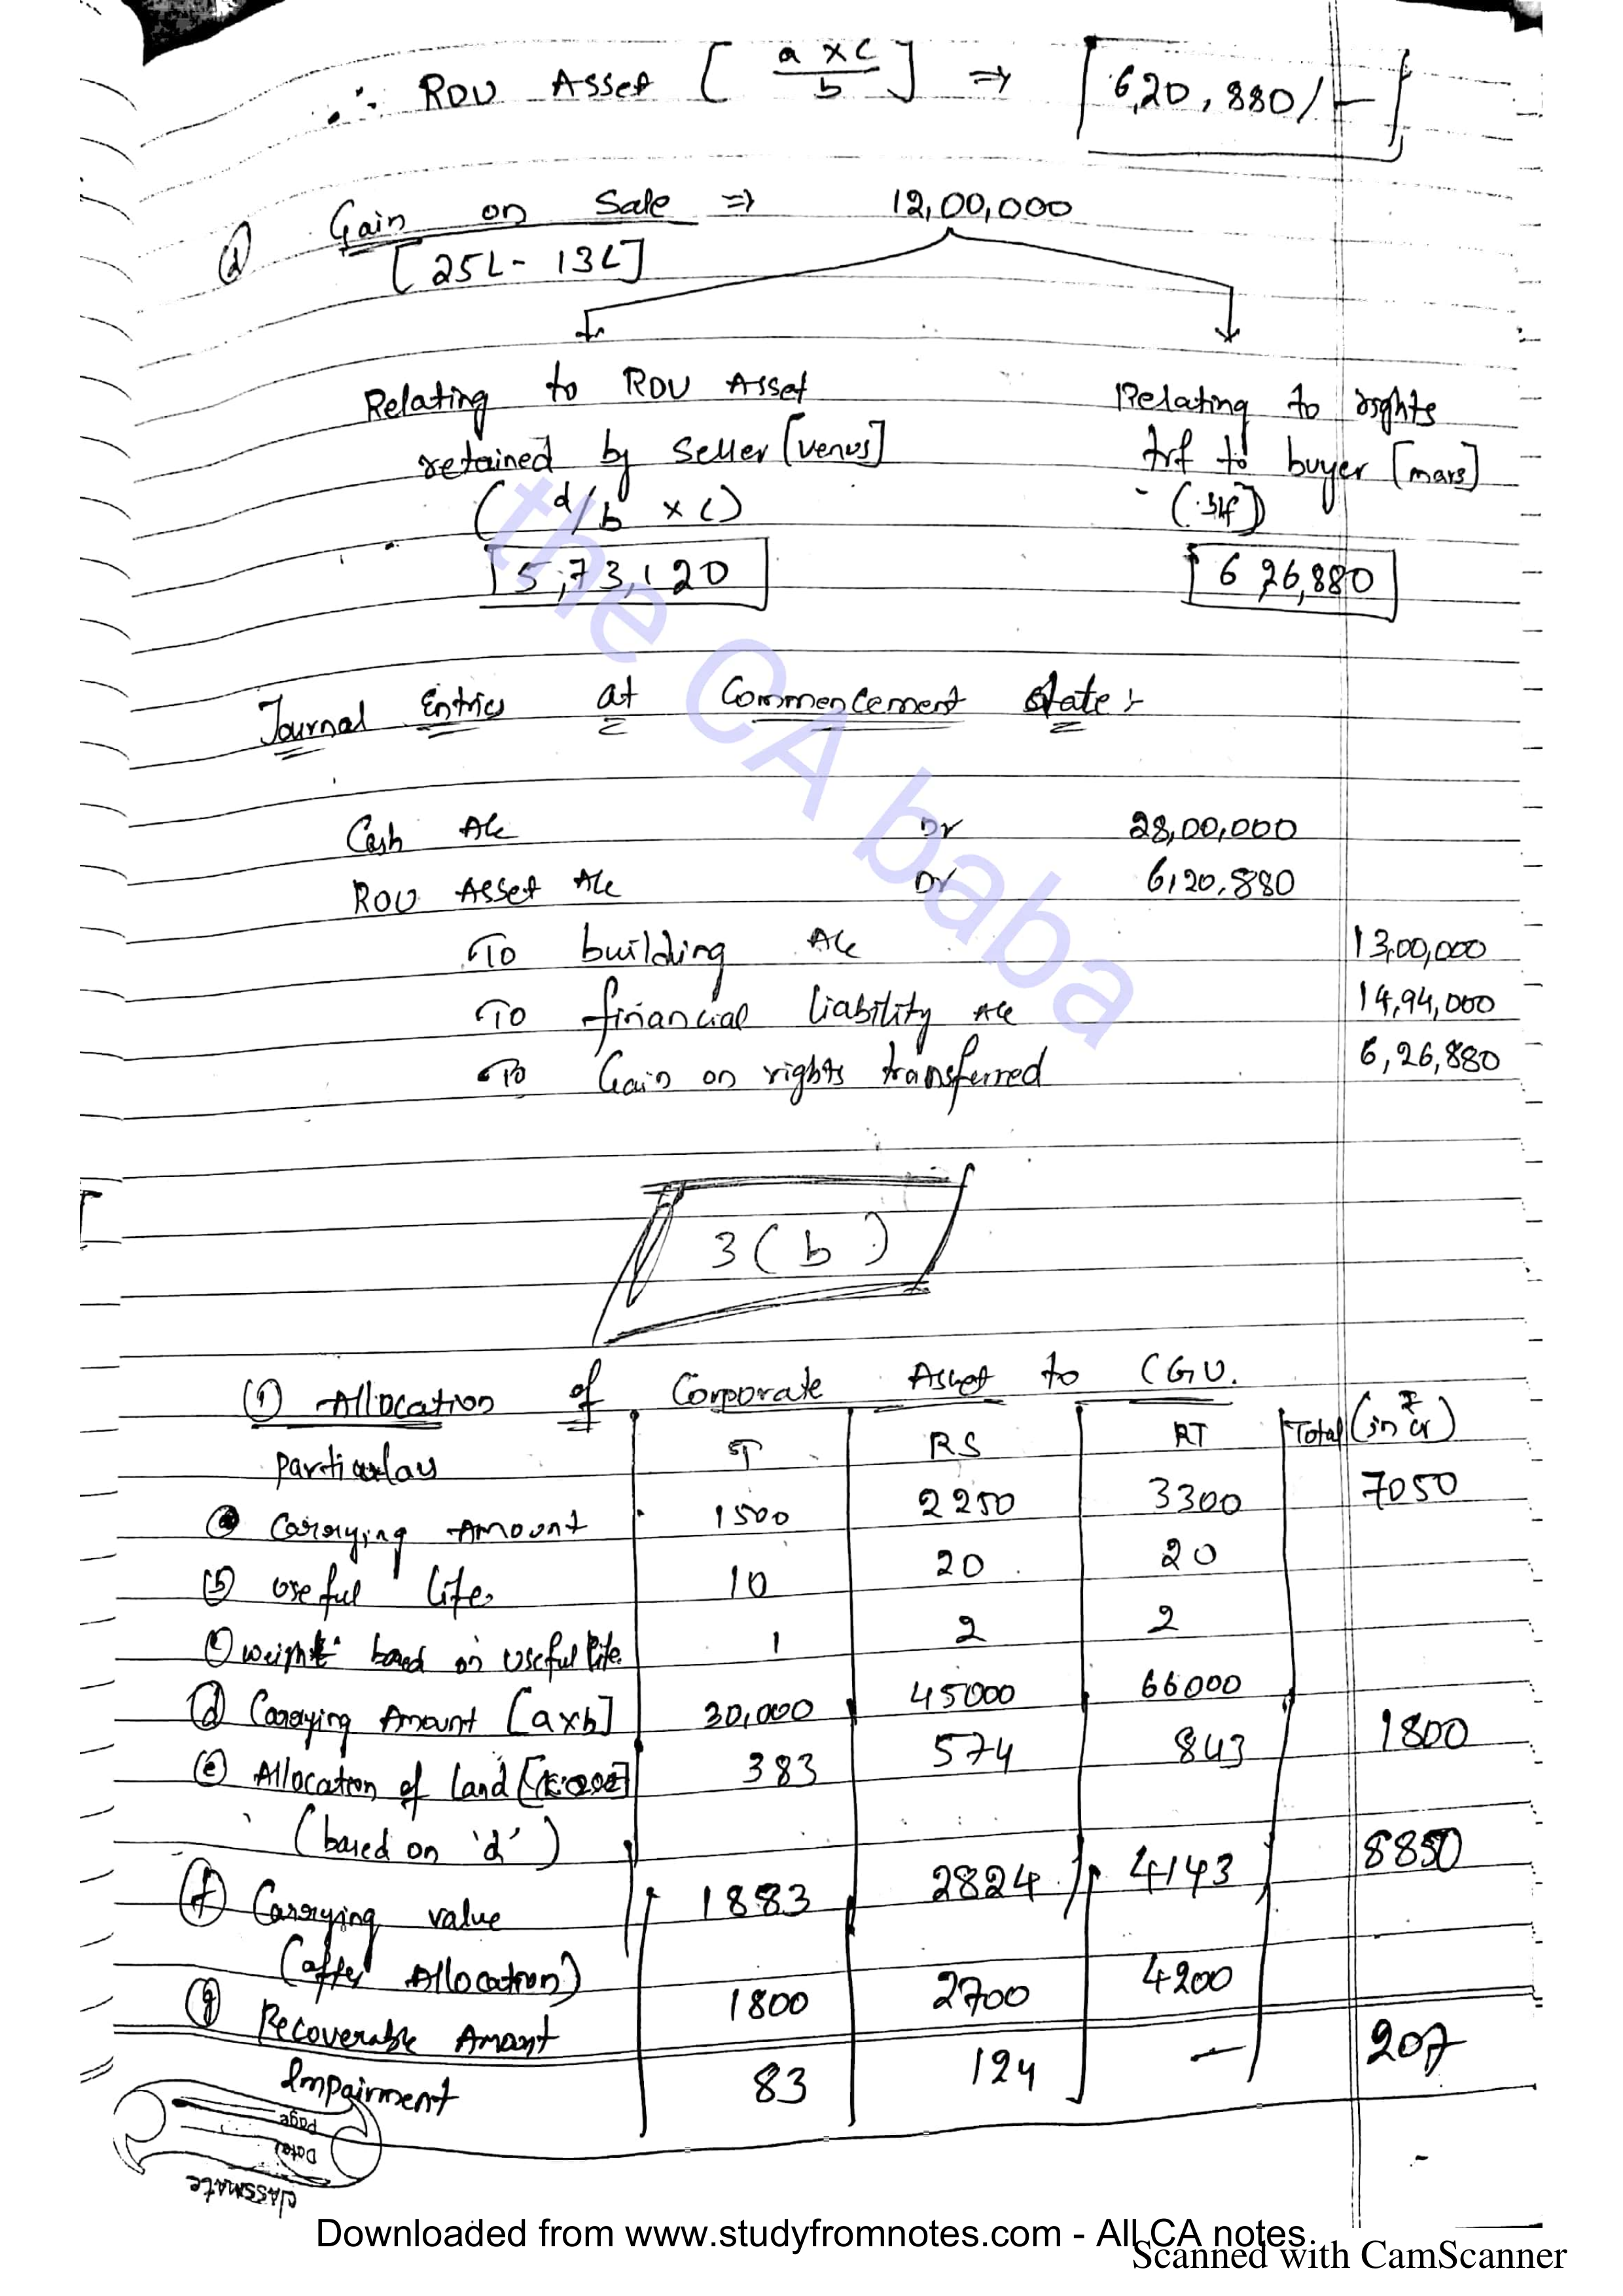 ∴ ROU Asset [ a x c / b ] ⇒ 6,20,880/-
(d) Gain on Sale ⇒ 12,00,000
[25L - 13L]
Relating to ROU Asset
retained by seller [venus]
( d/b x c)
5,73,120
Relating to rights
trf to buyer [mars]
(.bf)
6,26,880
Journal Entries at Commencement date:-
Cash A/c Dr 28,00,000
ROU Asset A/c Dr 6,20,880
To building A/c 13,00,000
To financial liability A/c 14,94,000
To Gain on rights transferred 6,26,880
3(b)
(1) Allocation of Corporate Asset to CGU.
Particulars ST RS RT Total (in ₹ cr)
(a) Carrying Amount 1500 2250 3300 7050
(b) Useful life 10 20 20
(c) weight based on Useful life 1 2 2
(d) Carrying Amount [axb] 30,000 45000 66000
(e) Allocation of land 383 574 843 1800
(based on 'd')
(f) Carrying value 1883 2824 4143 8850
(after Allocation)
(g) Recoverable Amount 1800 2700 4200
Impairment 83 124 — 207
classmate
Date
Page
the CA baba
Downloaded from www.studyfromnotes.com - All CA notes
Scanned with CamScanner